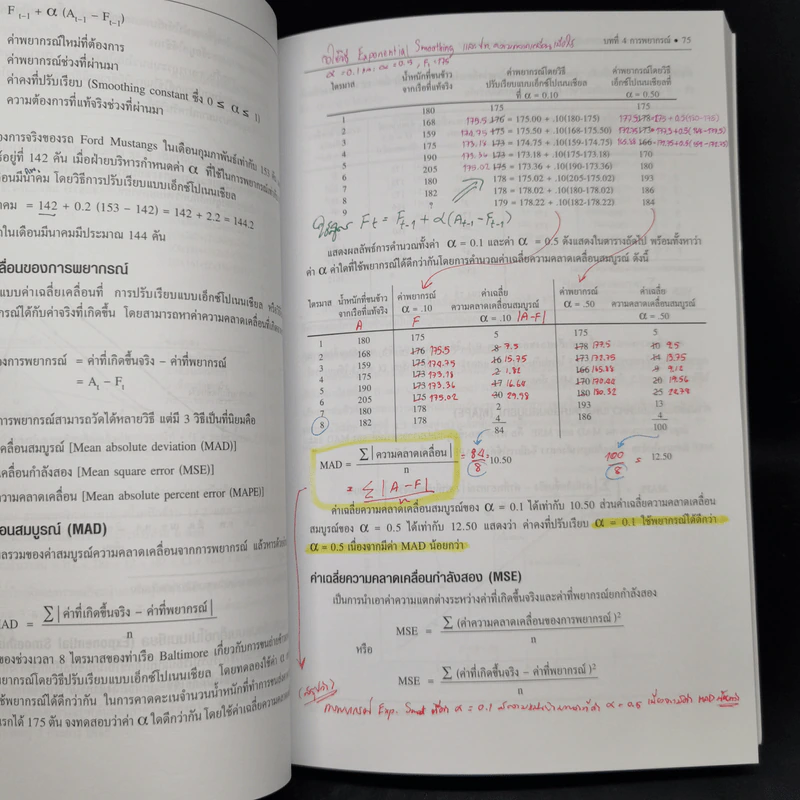 F t–1 + α (A t–1 – F t–1)
ค่าพยากรณ์ใหม่ที่ต้องการ
ค่าพยากรณ์ช่วงที่ผ่านมา
ค่าคงที่ปรับเรียบ (Smoothing constant ซึ่ง 0 ≤ α ≤ 1)
ความต้องการที่แท้จริงช่วงที่ผ่านมา
องการจริงของรถ Ford Mustangs ในเดือนกุมภาพันธ์เท่ากับ 153 คัน
อยู่ที่ 142 คัน เมื่อฝ่ายบริหารกำหนดค่า α ที่ใช้ในการพยากรณ์
โดยวิธีการปรับเรียบแบบเอ็กซ์โปเนนเชียล
าคม = 142 + 0.2 (153 – 142) = 142 + 2.2 = 144.2
าในเดือนมีนาคมมีประมาณ 144 คัน
ลื่อนของการพยากรณ์
แบบค่าเฉลี่ยเคลื่อนที่ การปรับเรียบแบบเอ็กซ์โปเนนเชียล
กรณ์ได้กับค่าจริงที่เกิดขึ้น โดยสามารถหาค่าความคลาดเคลื่อน
องการพยากรณ์ = ค่าที่เกิดขึ้นจริง – ค่าที่พยากรณ์
= At – Ft
การพยากรณ์สามารถวัดได้หลายวิธี แต่มี 3 วิธีเป็นที่นิยมคือ
คลื่อนสมบูรณ์ [Mean absolute deviation (MAD)]
คลื่อนกำลังสอง [Mean square error (MSE)]
ความคลาดเคลื่อน [Mean absolute percent error (MAPE)]
อนสมบูรณ์ (MAD)
ผลรวมของค่าสมบูรณ์ความคลาดเคลื่อนจากการพยากรณ์ แล้วหาร
MAD = ∑ | ค่าที่เกิดขึ้นจริง – ค่าที่พยากรณ์ |
n
ของช่วงเวลา 8 ไตรมาสของท่าเรือ Baltimore เกี่ยวกับการขนถ่าย
กรณ์โดยวิธีปรับเรียบแบบเอ็กซ์โปเนนเชียล โดยทดลองใช้ค่า α
ใช้พยากรณ์ได้ดีกว่ากัน ในการคาดคะเนจำนวนน้ำหนักที่ทำการขน
แรกได้ 175 ตัน จงทดสอบว่าค่า α ใดดีกว่ากัน โดยใช้ค่าเฉลี่ยความ
บทที่ 4 การพยากรณ์ • 75
Exponential Smoothing
ไตรมาส น้ำหนักที่ขนข้าว ค่าพยากรณ์โดยวิธี ค่าพยากรณ์โดยวิธี
จากเรือที่แท้จริง ปรับเรียบแบบเอ็กซ์โปเนนเชียล เอ็กซ์โปเนนเชียลที่
ที่ α = 0.10 α = 0.50
1 180 175 175
2 168 175.5 176 = 175.00 + .10(180-175) 177.5 178
3 159 174.75 175 = 175.50 + .10(168-175.50) 173
4 175 173.18 173 = 174.75 + .10(159-174.75) 166
5 190 173.36 173 = 173.18 + .10(175-173.18) 170
6 205 175.02 175 = 173.36 + .10(190-173.36) 180
7 180 178 = 175.02 + .10(205-175.02) 193
8 182 178 = 178.02 + .10(180-178.02) 186
9 ? 179 = 178.22 + .10(182-178.22) 184
Ft = Ft-1 + α(At-1 - Ft-1)
แสดงผลลัพธ์การคำนวณทั้งค่า α = 0.1 และค่า α = 0.5 ดังแสดงในตารางถัดไป พร้อมทั้งหาว่า
ค่า α ค่าใดที่ใช้พยากรณ์ได้ดีกว่ากันโดยการคำนวณค่าเฉลี่ยความคลาดเคลื่อนสมบูรณ์ ดังนี้
ไตรมาส น้ำหนักที่ขนข้าว ค่าพยากรณ์ ค่าเฉลี่ย ค่าพยากรณ์ ค่าเฉลี่ย
จากเรือที่แท้จริง α = .10 ความคลาดเคลื่อนสมบูรณ์ α = .50 ความคลาดเคลื่อนสมบูรณ์
A F α = .10 |A-F| α = .50
1 180 175 5 175 5
2 168 176 175.5 8 7.5 178 177.5 10 9.5
3 159 175 174.75 16 15.75 173 172.75 14 13.75
4 175 173 173.18 2 1.82 166 165.88 9 9.12
5 190 173 173.36 17 16.64 170 170.44 20 19.56
6 205 175 175.02 30 29.98 180 180.22 25 24.78
7 180 178 2 193 13
8 182 178 4 186 4
84 100
MAD = ∑ | ความคลาดเคลื่อน | = 84 10.50 100 = 12.50
n 8 8
= ∑ |A-F|
n
ค่าเฉลี่ยความคลาดเคลื่อนสมบูรณ์ของ α = 0.1 ได้เท่ากับ 10.50 ส่วนค่าเฉลี่ยความคลาดเคลื่อน
สมบูรณ์ของ α = 0.5 ได้เท่ากับ 12.50 แสดงว่า ค่าคงที่ปรับเรียบ α = 0.1 ใช้พยากรณ์ได้ดีกว่า
α = 0.5 เนื่องจากมีค่า MAD น้อยกว่า
ค่าเฉลี่ยความคลาดเคลื่อนกำลังสอง (MSE)
เป็นการนำเอาค่าความแตกต่างระหว่างค่าที่เกิดขึ้นจริงและค่าที่พยากรณ์ยกกำลังสอง
MSE = ∑ (ค่าความคลาดเคลื่อนของการพยากรณ์ )²
n
หรือ
MSE = ∑ (ค่าที่เกิดขึ้นจริง – ค่าที่พยากรณ์ )²
n